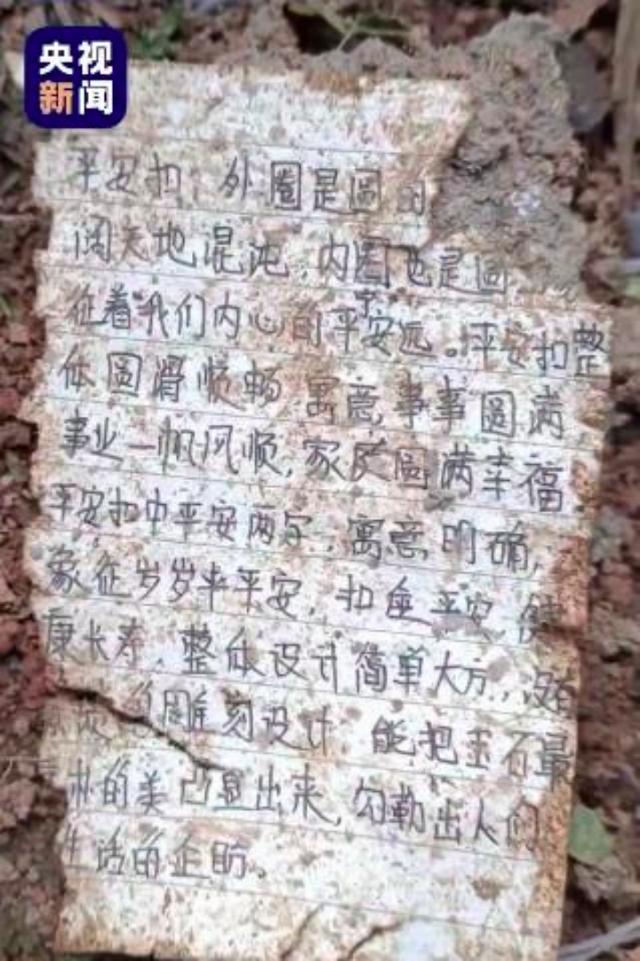 央视
新闻
平安扣，外圈是圆的
阔天地混沌，内圈也是圆，
征着我们内心的平安
宁远。平安扣整
体圆滑顺畅 寓意事事圆满，
事业一帆风顺，家庭圆满幸福
平安扣中平安两字，寓意明确，
象征岁岁年平安，扣愈平安 健
康长寿，整体设计简单大方，没有
雕刻设计 能把玉石最
的美凸显出来，勾勒出人们
生活的企盼。